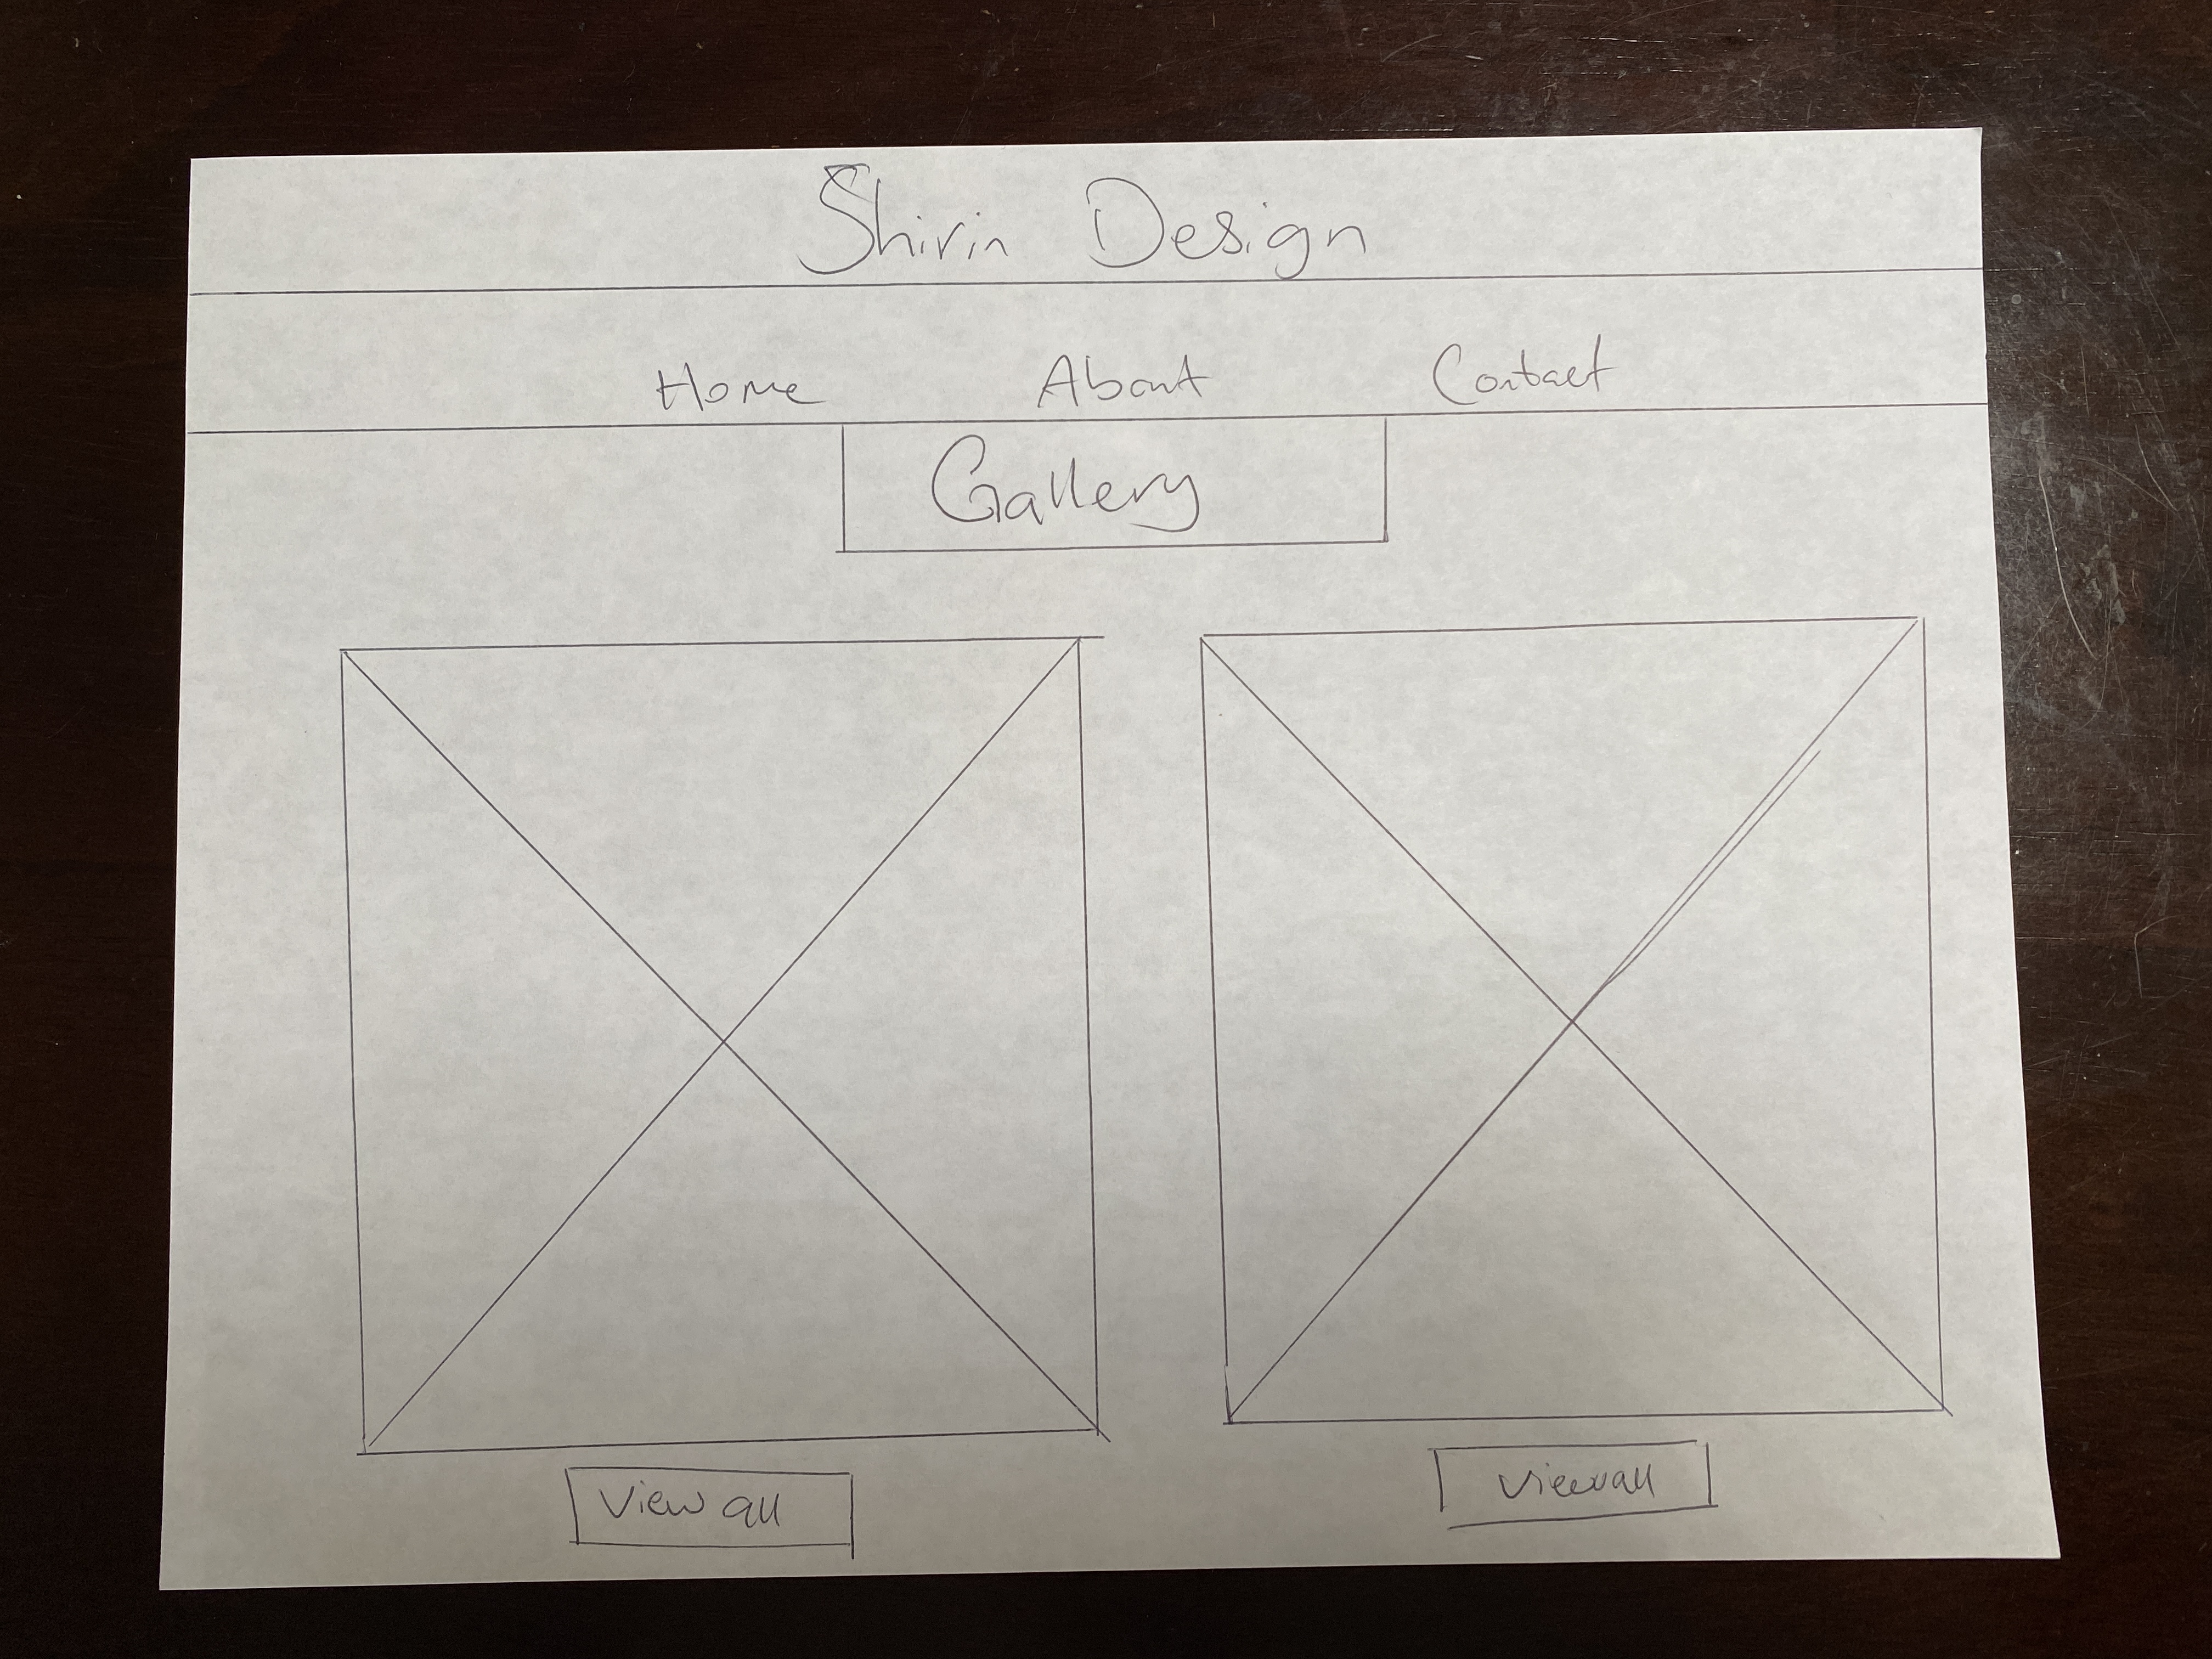 Shirin Design
Home About Contact
Gallery
View all
View all